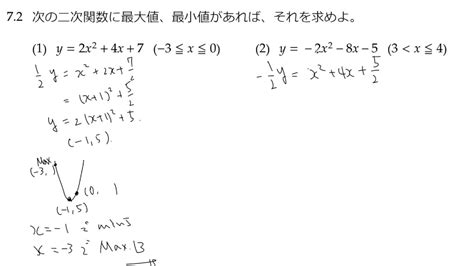 7.2 次の二次関数に最大値、最小値があれば、それを求めよ。
(1) y = 2x² + 4x + 7 (−3 ≦ x ≦ 0)
(2) y = −2x² − 8x − 5 (3 < x ≦ 4)
1/2 y = x² + 2x + 7/2
= (x+1)² + 5/2
y = 2(x+1)² + 5.
(−1, 5).
−1/2 y = x² + 4x + 5/2
Max
(−3, )
(0, )
(−1, 5)
x = −1 で min 5
x = −3 で Max 13